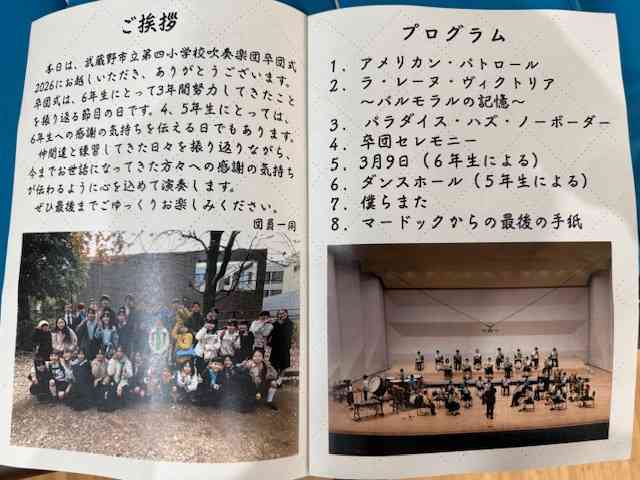 ご挨拶
本日は、武蔵野市立第四小学校吹奏楽団卒団式
2026にお越しいただき、ありがとうございます。
卒団式は、6年生にとって3年間努力してきたこと
を振り返る節目の日です。4、5年生にとっては、
6年生への感謝の気持ちを伝える日でもあります。
仲間達と練習してきた日々を振り返りながら、
今までお世話になってきた方々への感謝の気持ち
が伝わるように心を込めて演奏します。
ぜひ最後までごゆっくりお楽しみください。
団員一同
プログラム
1. アメリカン・パトロール
2. ラ・レーヌ・ヴィクトリア
～バルモラルの記憶～
3. パラダイス・ハズ・ノーボーダー
4. 卒団セレモニー
5. 3月9日（6年生による）
6. ダンスホール（5年生による）
7. 僕らまた
8. マードックからの最後の手紙